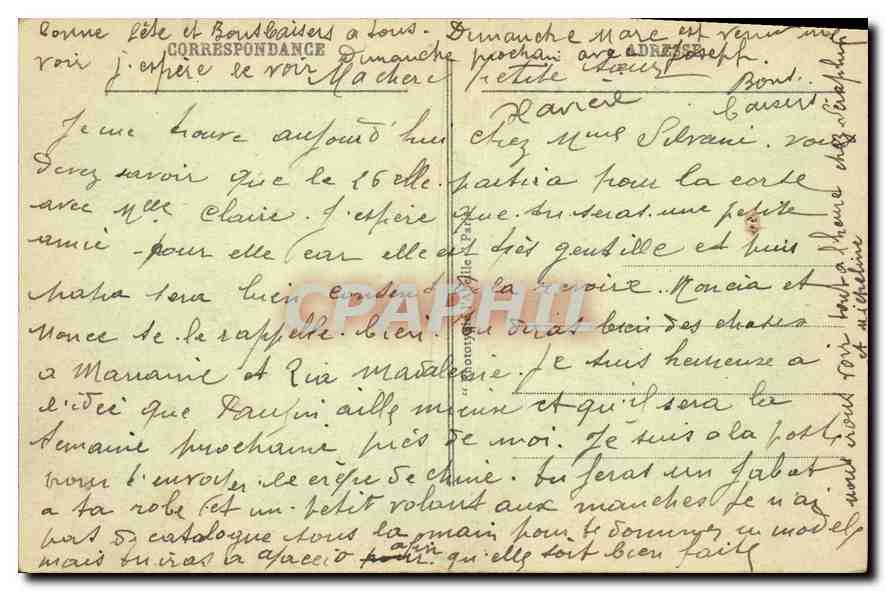 bonne fête et Bons baisers a tous. Dimanche Marc est venu me
CORRESPONDANCE
ADRESSE
voir j'espère le voir Dimanche prochain avec Joseph.
Ma chere petite sœur
Bons
baisers
Xaviere
Je me trouve aujourd'hui chez Mme Silvani. vous
devez savoir que le 26 elle partira pour la corse
avec Mlle Claire. J'espère que tu seras une petite
amie pour elle car elle est très gentille et puis
papa sera bien content de la revoir. et
Nonce se la rappelle bien. Tu diras bien des choses
a Marianne et Zia Madaleine. Je suis heureuse a
l'idée que aille mieux et qu'il sera la
semaine prochaine près de moi. Je suis a la poste
pour t'envoyer le crêpe de chine. tu feras un jabot
a ta robe et un petit volant aux manches je n'ai
pas de catalogue sous la main pour te donner un modele
mais tu iras a ajaccio afin qu'elle soit bien faite
nous irons voir tout a l'heure chez Seraphin
et Micheline
Phototypie Paris
CPAPHIL